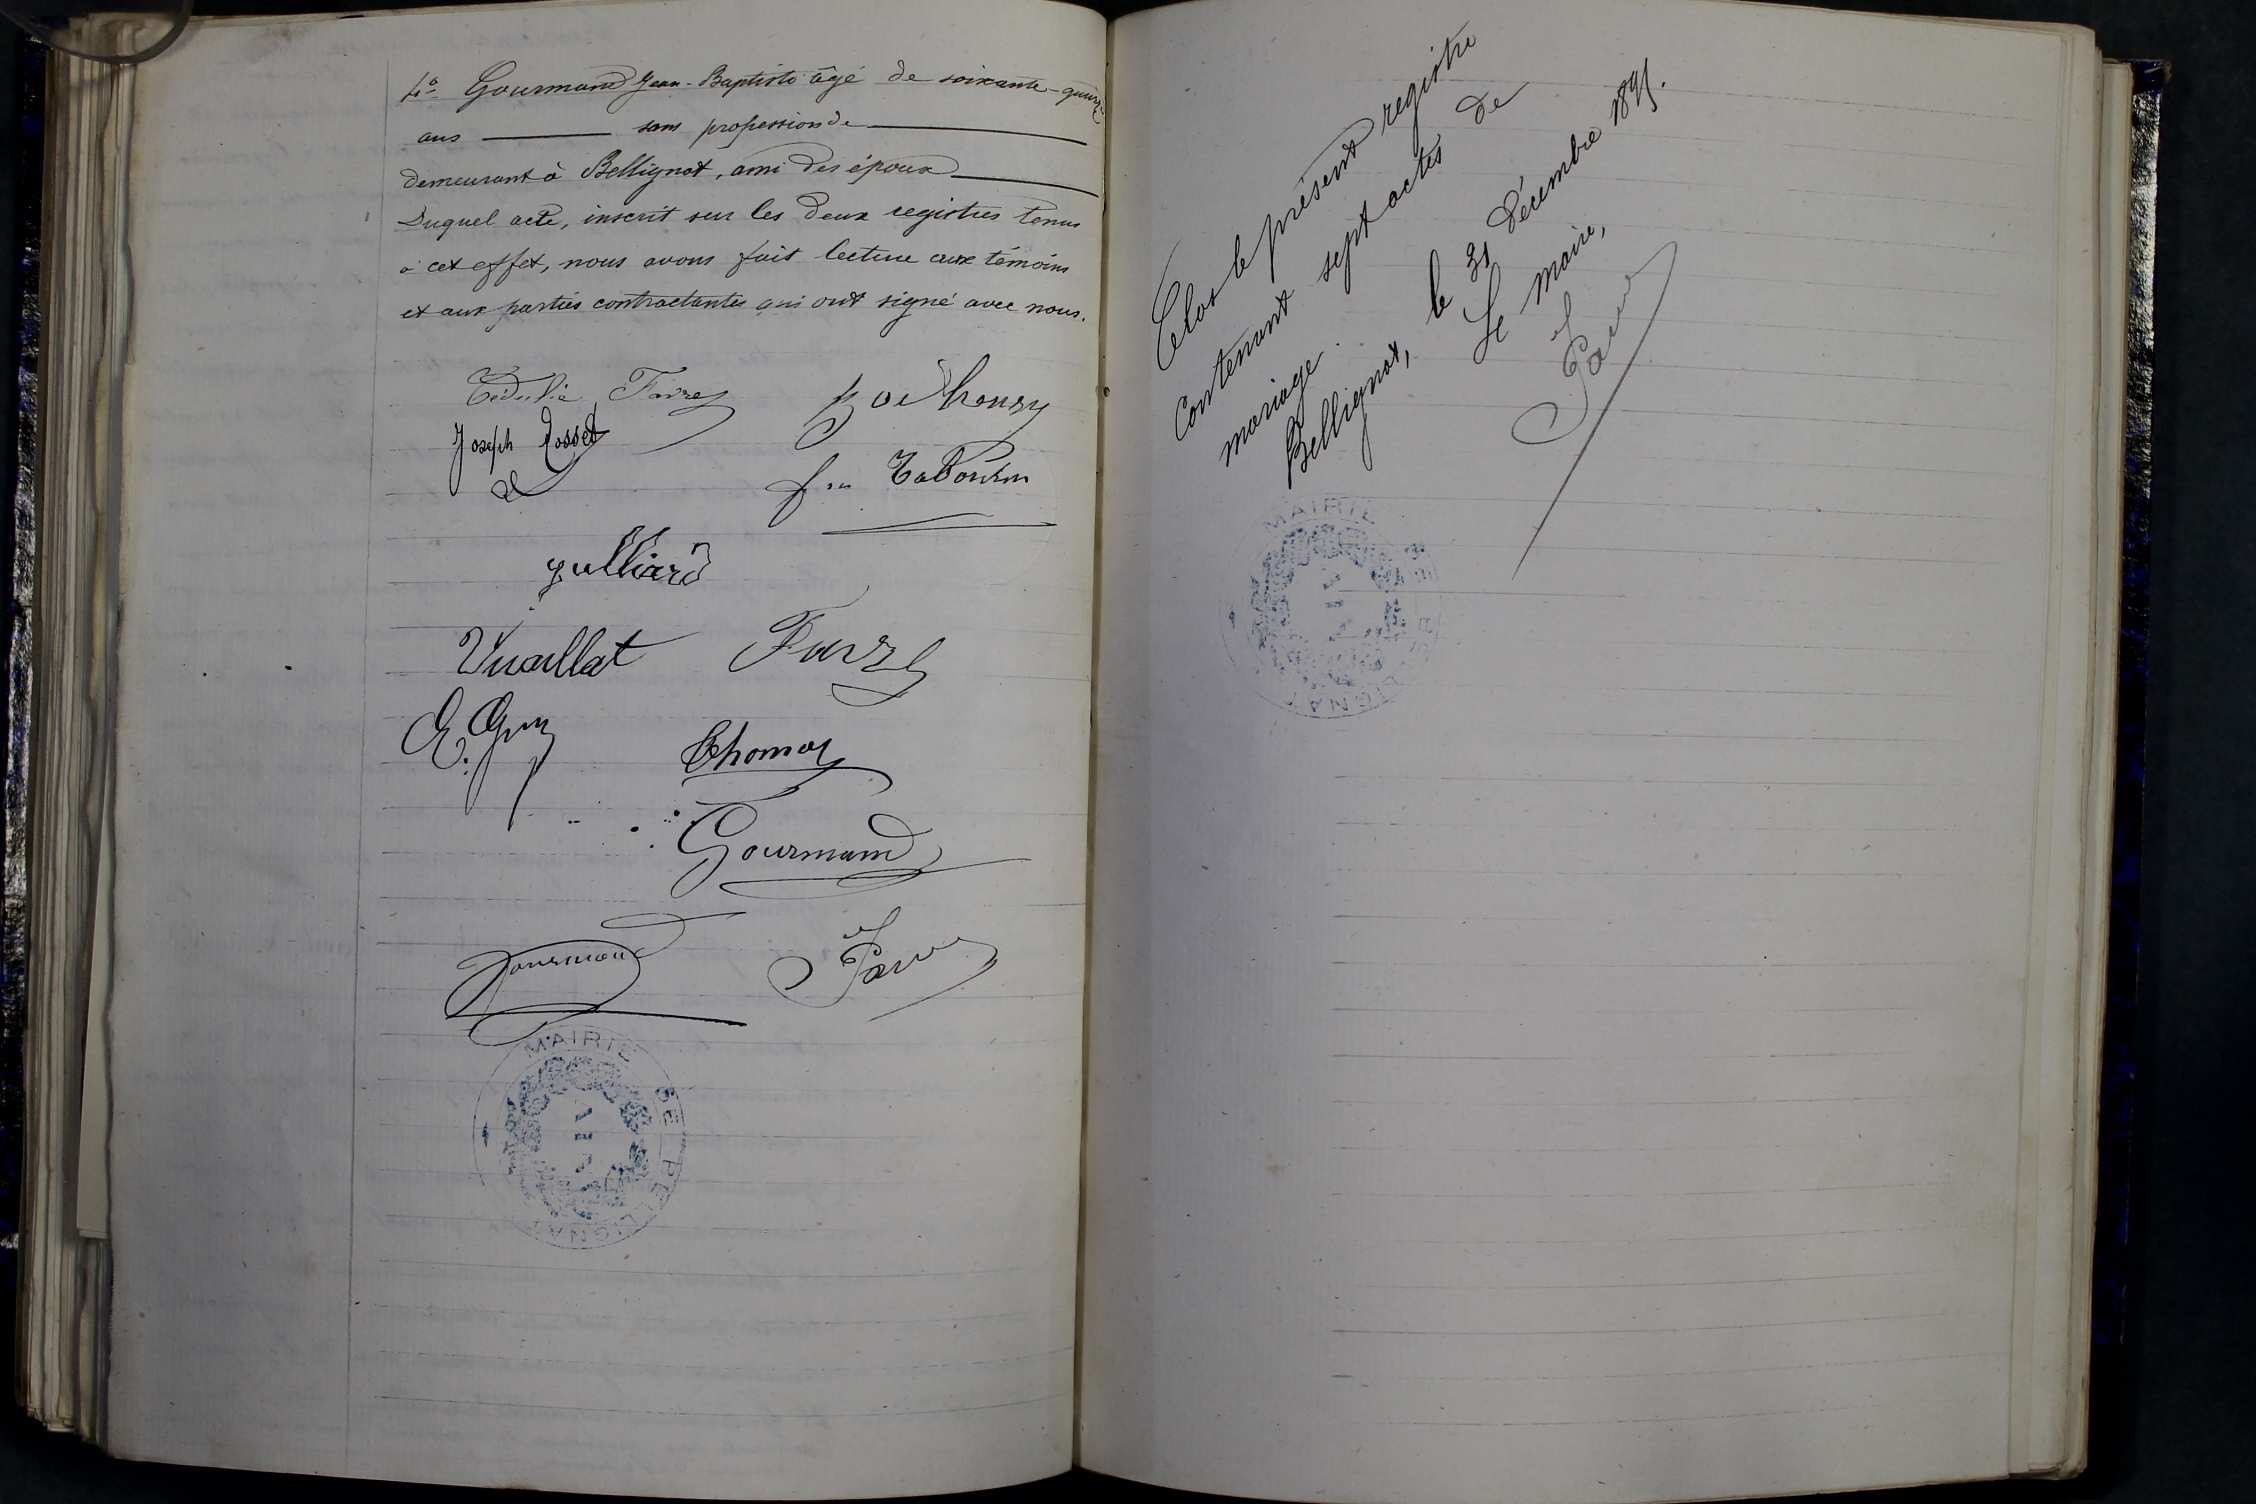 4º Gourmand Jean-Baptiste âgé de soixante-quinze
ans sans profession de
demeurant à Bellignat, ami des époux
Duquel acte, inscrit sur les deux registres tenus
à cet effet, nous avons fait lecture aux témoins
et aux parties contractantes qui ont signé avec nous.
Favre
Joseph Rosset
Vuaillat Favre
E. Guy
Thomas
Gourmand
Gourmand
MAIRIE DE BELLIGNAT
Clos le présent registre
contenant sept actes de
mariage.
Bellignat, le 31 Décembre
Le maire,
MAIRIE DE BELLIGNAT